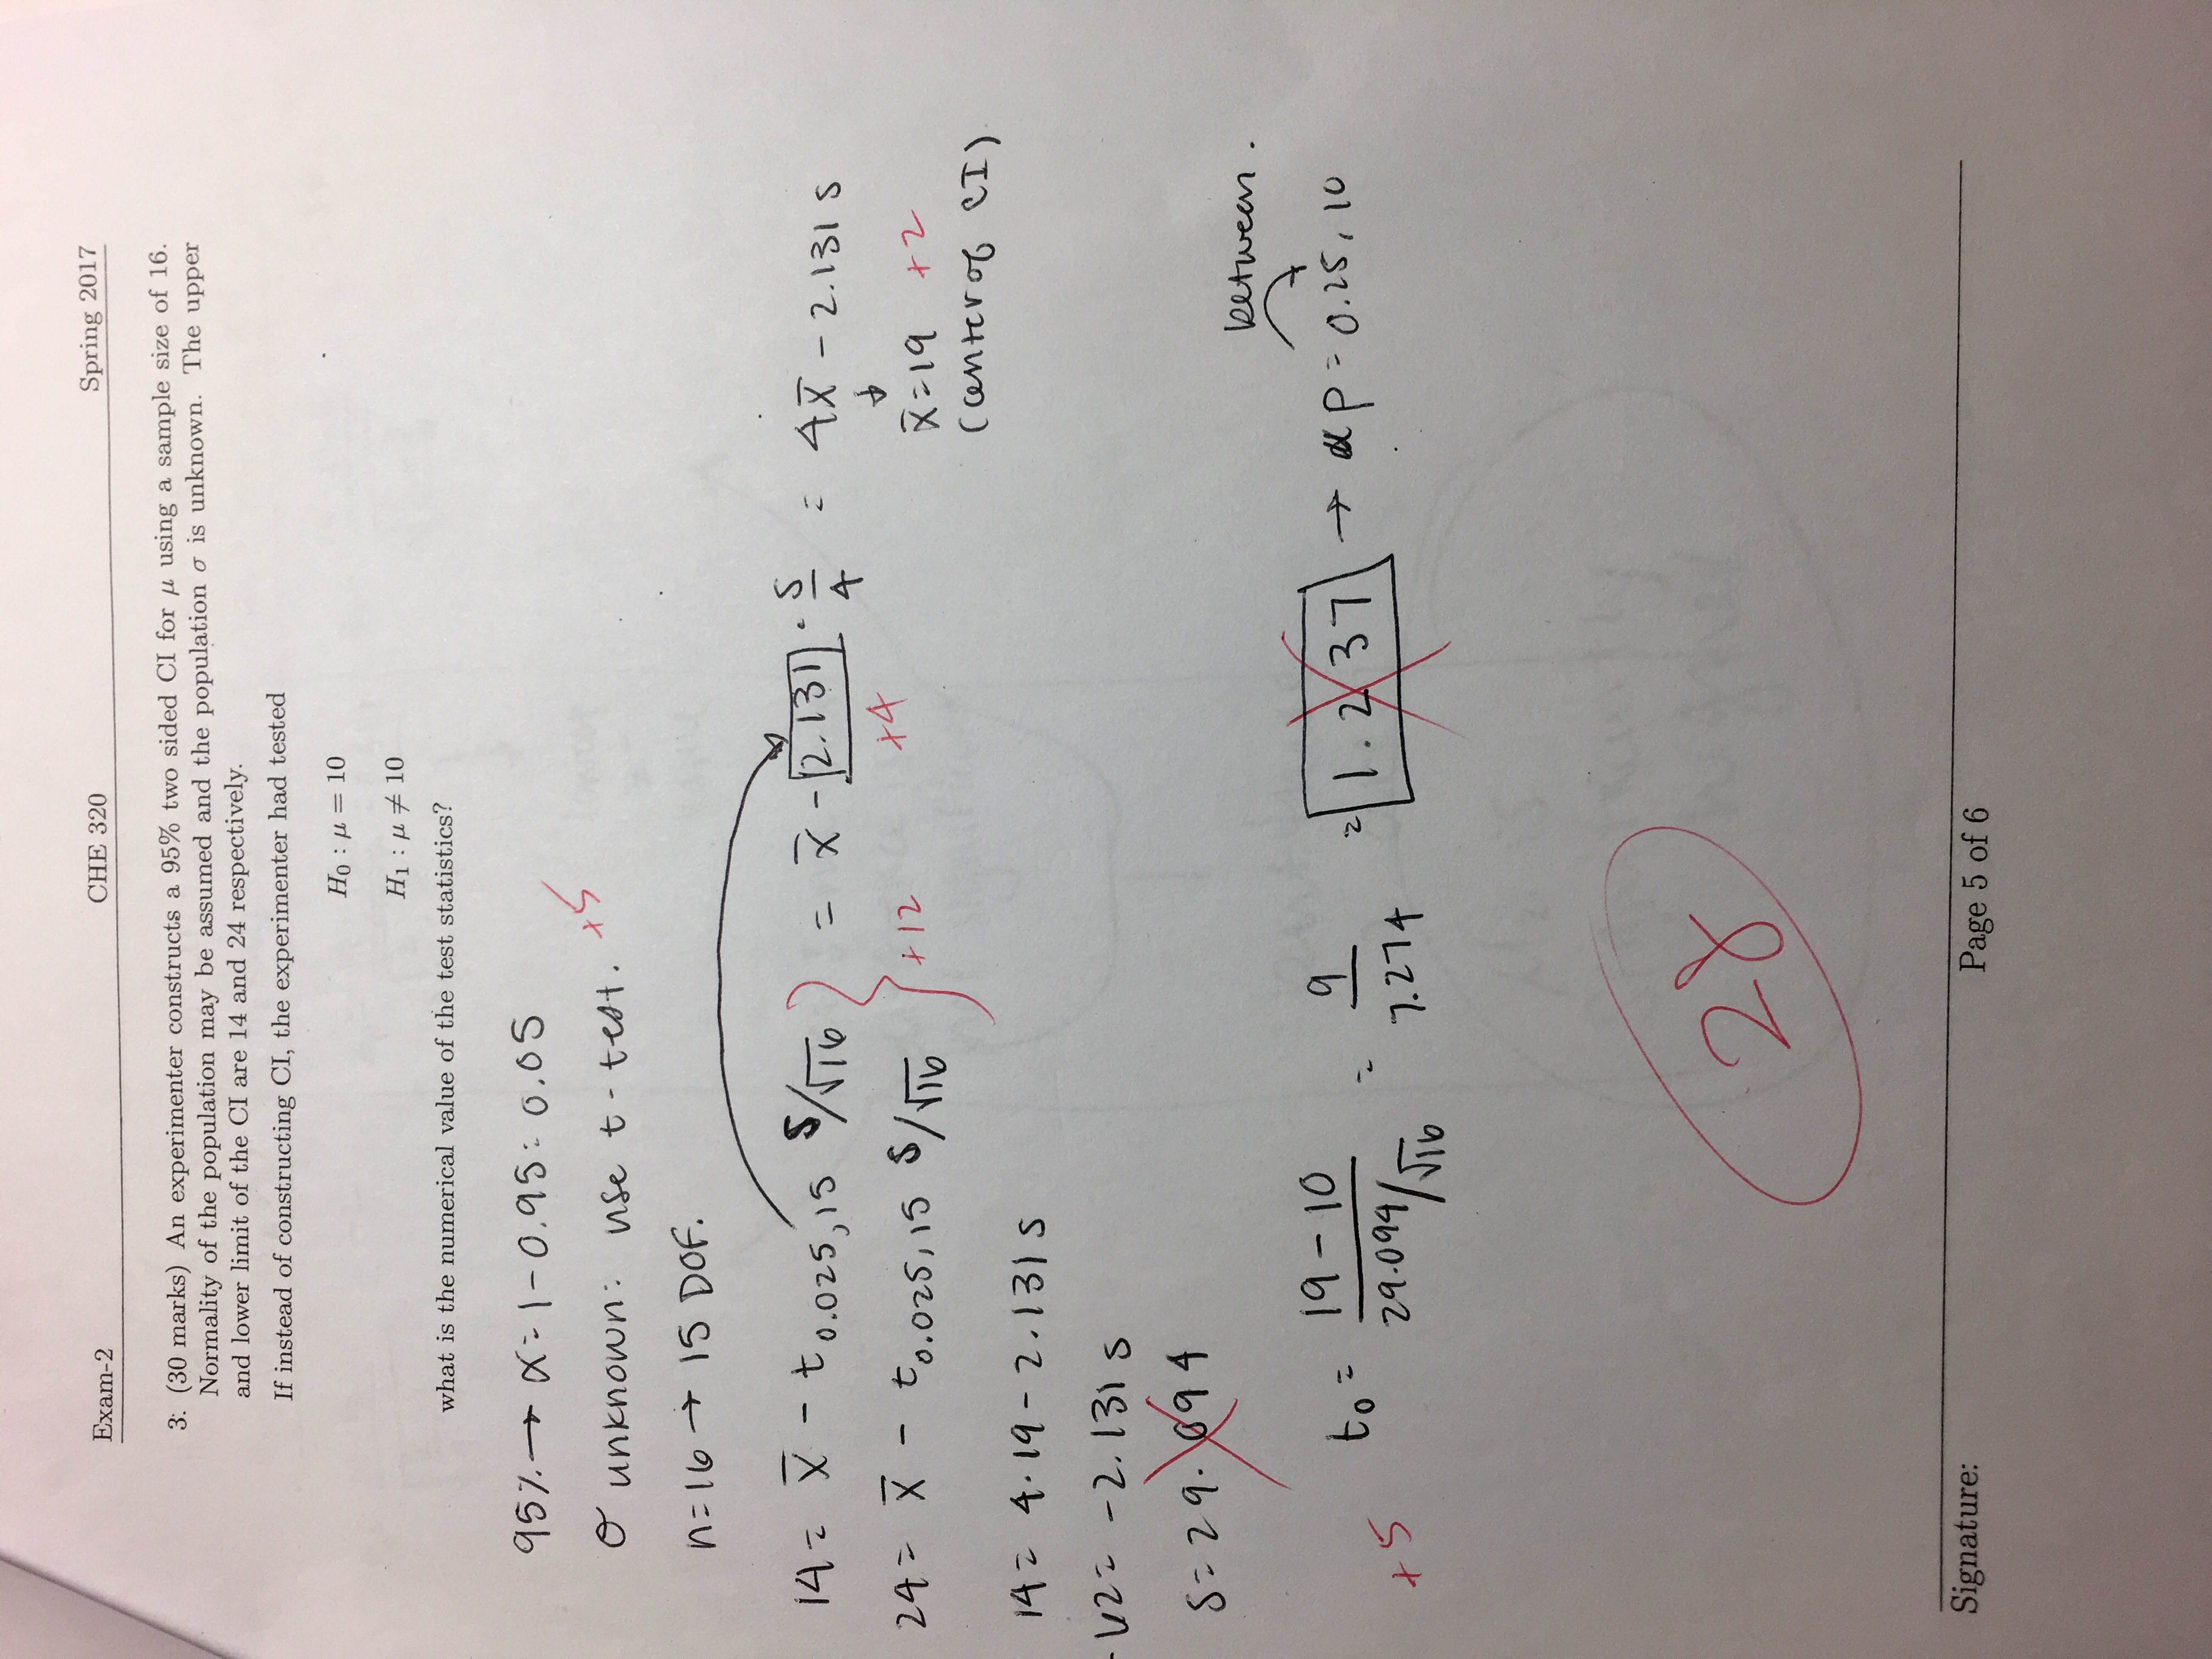 Exam-2 CHE 320 Spring 2017
3. (30 marks) An experimenter constructs a 95% two sided CI for μ using a sample size of 16.
Normality of the population may be assumed and the population σ is unknown. The upper
and lower limit of the CI are 14 and 24 respectively.
If instead of constructing CI, the experimenter had tested
H₀ : μ = 10
H₁ : μ ≠ 10
what is the numerical value of the test statistics?
95% → α = 1 - 0.95 = 0.05
σ unknown: use t-test. +5
n=16 → 15 DOF.
14 = x̄ - t0.025,15 S/√16 = x̄ - 2.131 · S/4 = 4x̄ - 2.131 s
24 = x̄ - t0.025,15 S/√16 +12 +4 x̄=19 +2
(center of CI)
14 = 4·19 - 2.131 s
-62 = -2.131 s
S = 29.094
between.
+5 t₀ = 19-10 / 29.094/√16 = 9 / 7.274 = 1.237 → p = 0.25, 10
28
Signature: Page 5 of 6